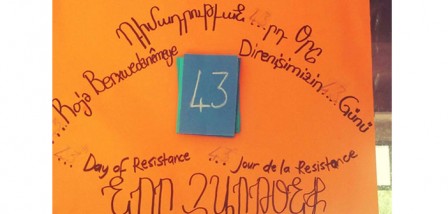 Դիմադրութեան ....43.... րդ Օրը
....43.... Roja Berxwedanêmeye
Direnişimizin ....43.... Günü
43
....43.... Day of Resistance
....43.... Jour de la Resistance
ՆՈՐ ԶԱՐԹՕՆՔ